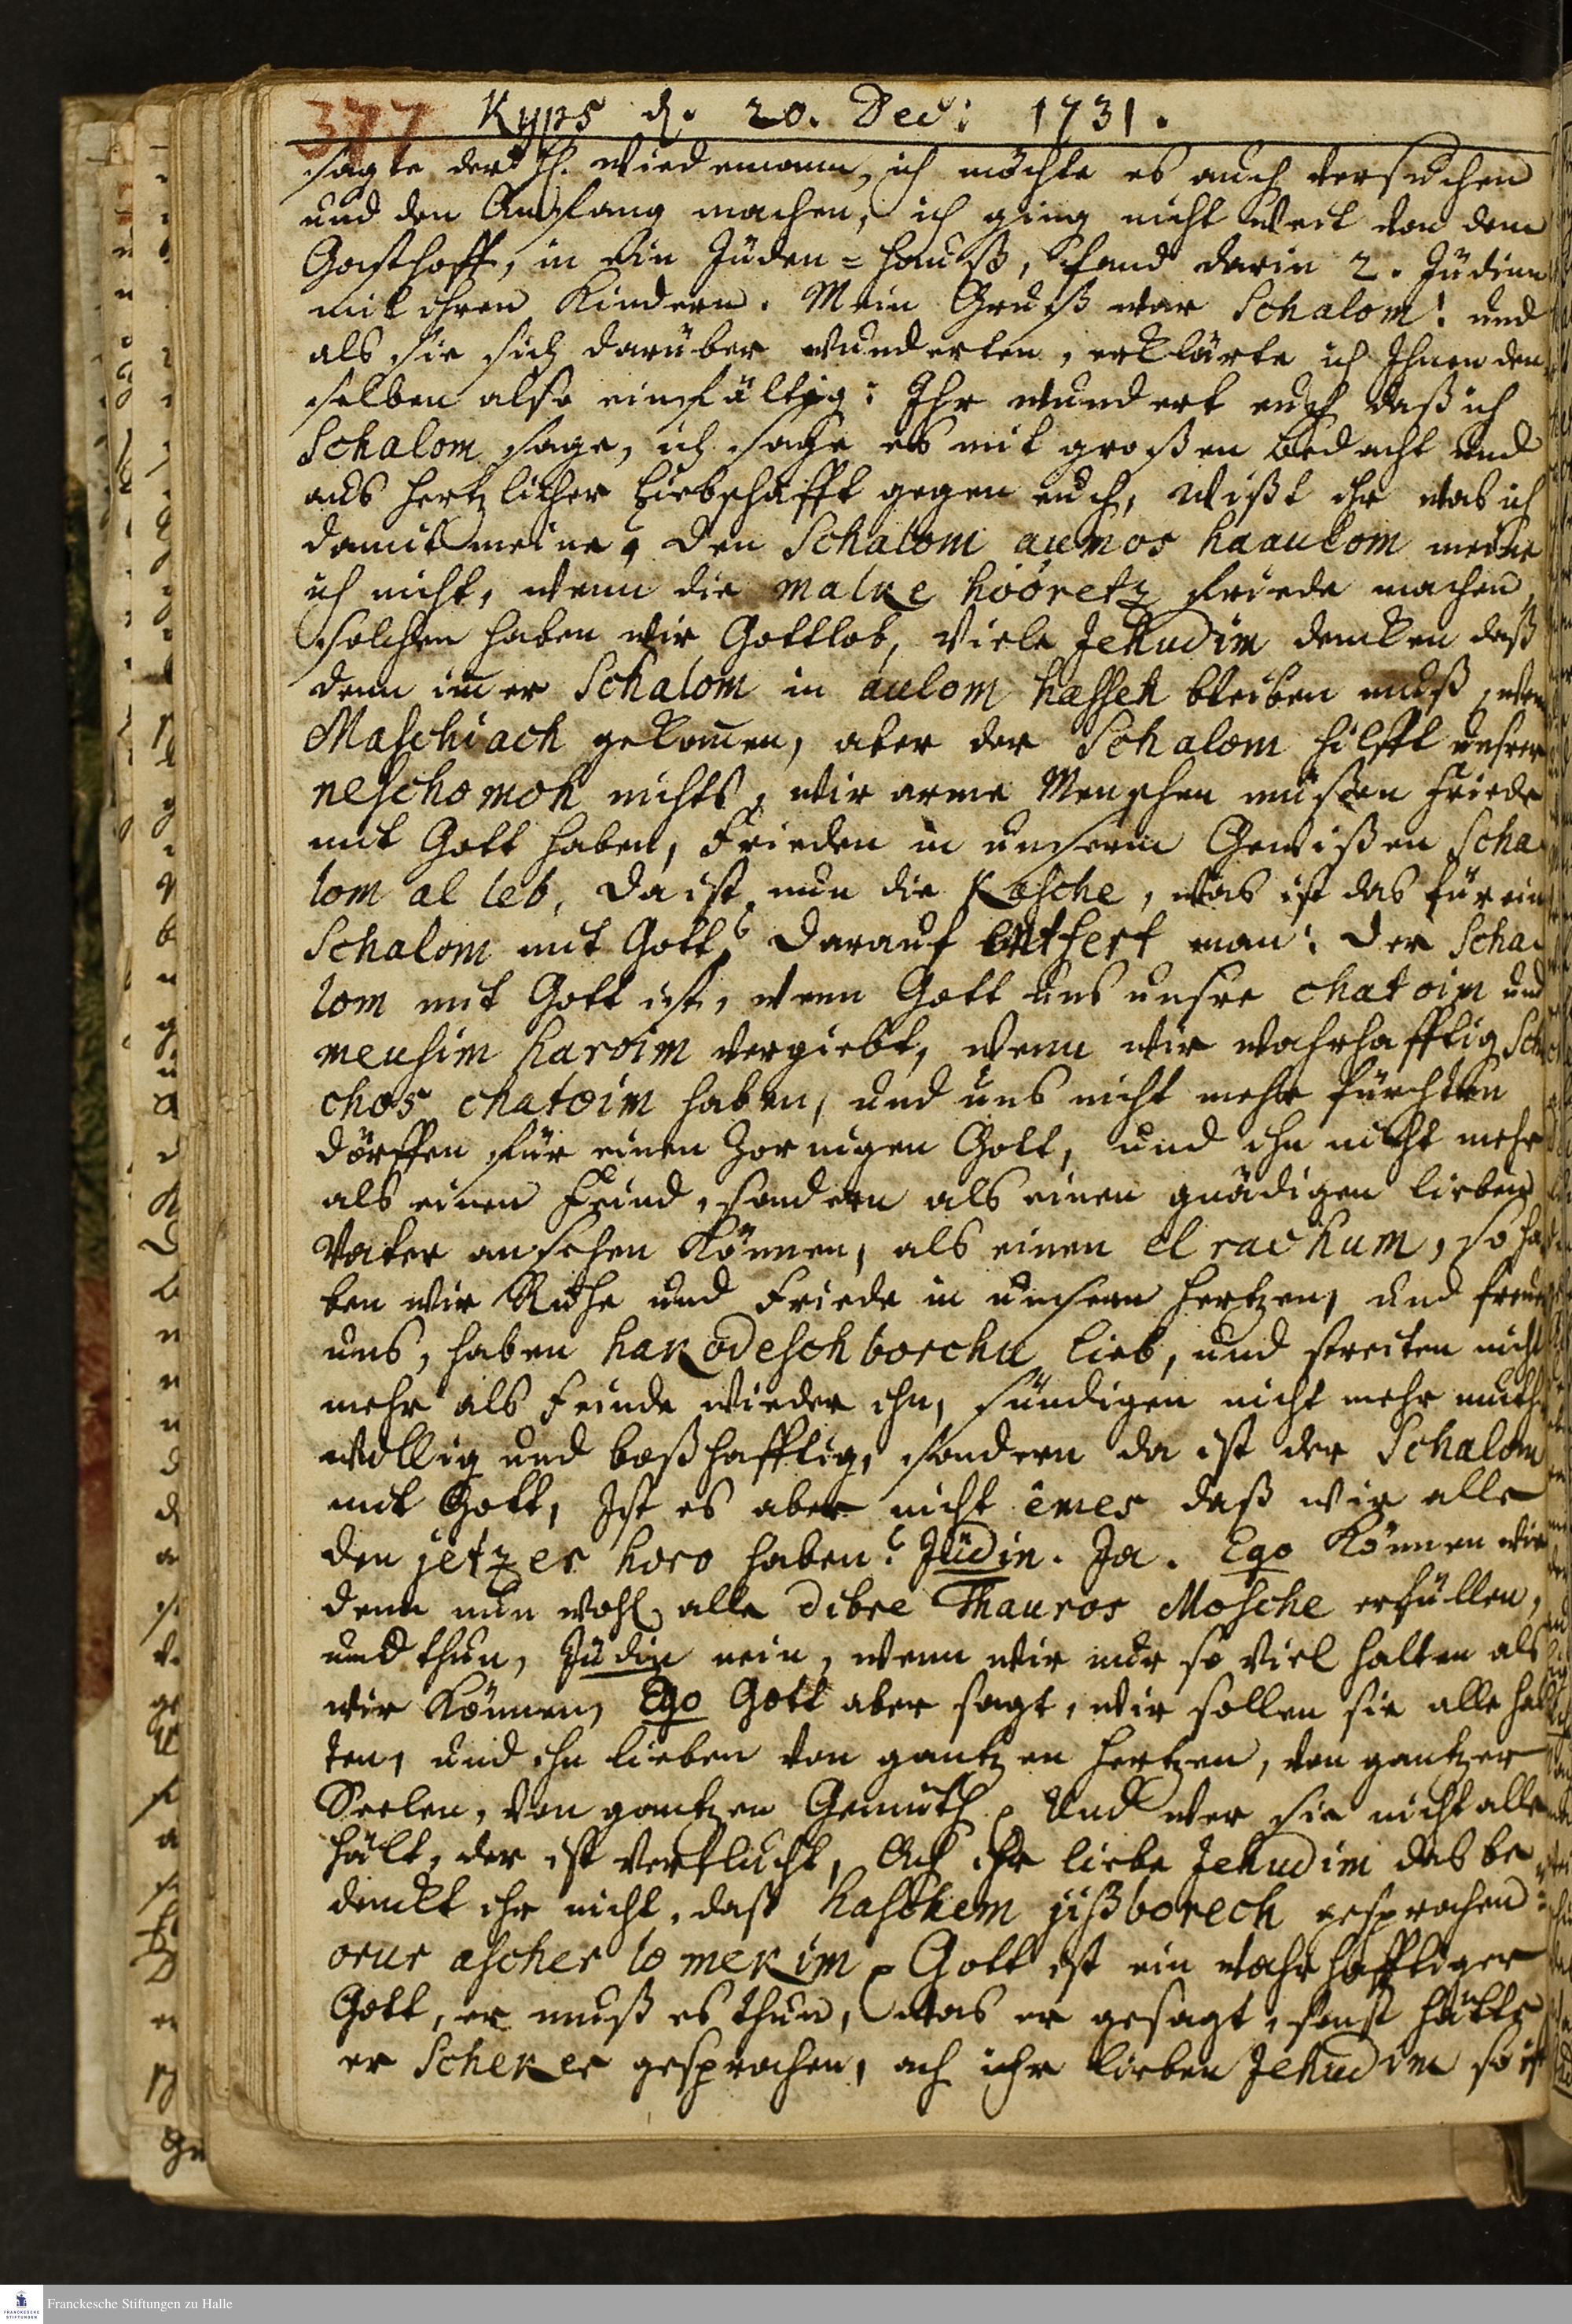 377 Kyps d. 20. Dec: 1731.
sagte der H. Wiedemann, ich möchte es auch versuchen
und den Anfang machen, ich ging nicht weit von dem
Gasthoff, in ein Juden-Hauß, fand darin 2. Jüdinn
mit ihren Kindern. Mein Gruß war Schalom! und
als sie sich darüber wunderten, erklärte ich Ihnen den
selben also einfältig: Ihr wundert euch daß ich
Schalom sage, ich sage es mit großen Bedacht und
aus hertzlicher Liebschafft gegen euch, wißt ihr was ich
damit meine, den Schalom aumos haaulom meine
ich nicht, wenn die malke hoóretz Friede machen,
solchen haben wir Gottlob, viele Jehudim dencken daß
denn imer Schalom in aulom hasseh bleiben muß, wen
Maschiach gekomen, aber der Schalom hilfft unsrer
neschomoh nichts, wir arme Menschen müßen Friede
mit Gott haben, Frieden in unserm Gewißen Scha
lom al leb, da ist nun die Kasche, was ist das für ein
Schalom mit Gott? Darauf entfert man: Der Scha
lom mit Gott ist, wenn Gott uns unsre chatoim und
meusim haroim vergiebt, wenn wir wahrhafftig Sli
chos chatoim haben, und uns nicht mehr fürchten
dörffen für einen zornigen Gott, und ihn nicht mehr
als einen Feind, sondern als einen gnädigen lieben
Vater ansehen können, als einen el rachum, so ha
ben wir Ruhe und Friede in unsern Hertzen, und freuen
uns, haben hakodesch borchu lieb, und streiten nicht
mehr als Feinde wieder ihn, sündigen nicht mehr muth
willig und boßhafftig, sondern da ist der Schalom
mit Gott, Ist es aber nicht émes daß wir alle
den jetzer horo haben? Jüdin. Ja. Ego Können wir
denn nun wohl alle dibre Thauros Mosche erfüllen,
und thun, Jüdin nein, wenn wir nur so viel halten als
wir können, Ego Gott aber sagt, wir sollen sie alle hal
ten, und ihn lieben von gantzen Hertzen, von gantzer
Seelen, von gantzen Gemüth. Und wer sie nicht alle
hält, der ist verflucht, Ach ihr liebe Jehudim das be
denckt ihr nicht, daß haschem jißborech gesprochen:
orur ascher lo mekim. Gott ist ein wahrhafftiger
Gott, er muß es thun, was er gesagt, sonst hätte
er Scheker gesprochen, ach ihr lieben Jehudim so ist
Franckesche Stiftungen zu Halle